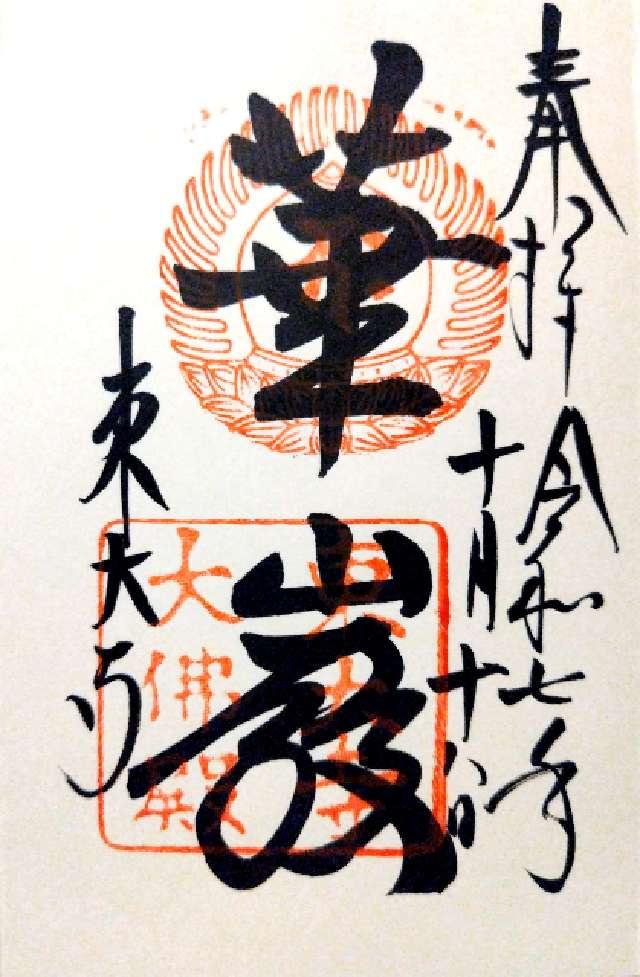 奉拝
令和七年
十月十八日
華嚴
東大寺
東大寺
大佛殿